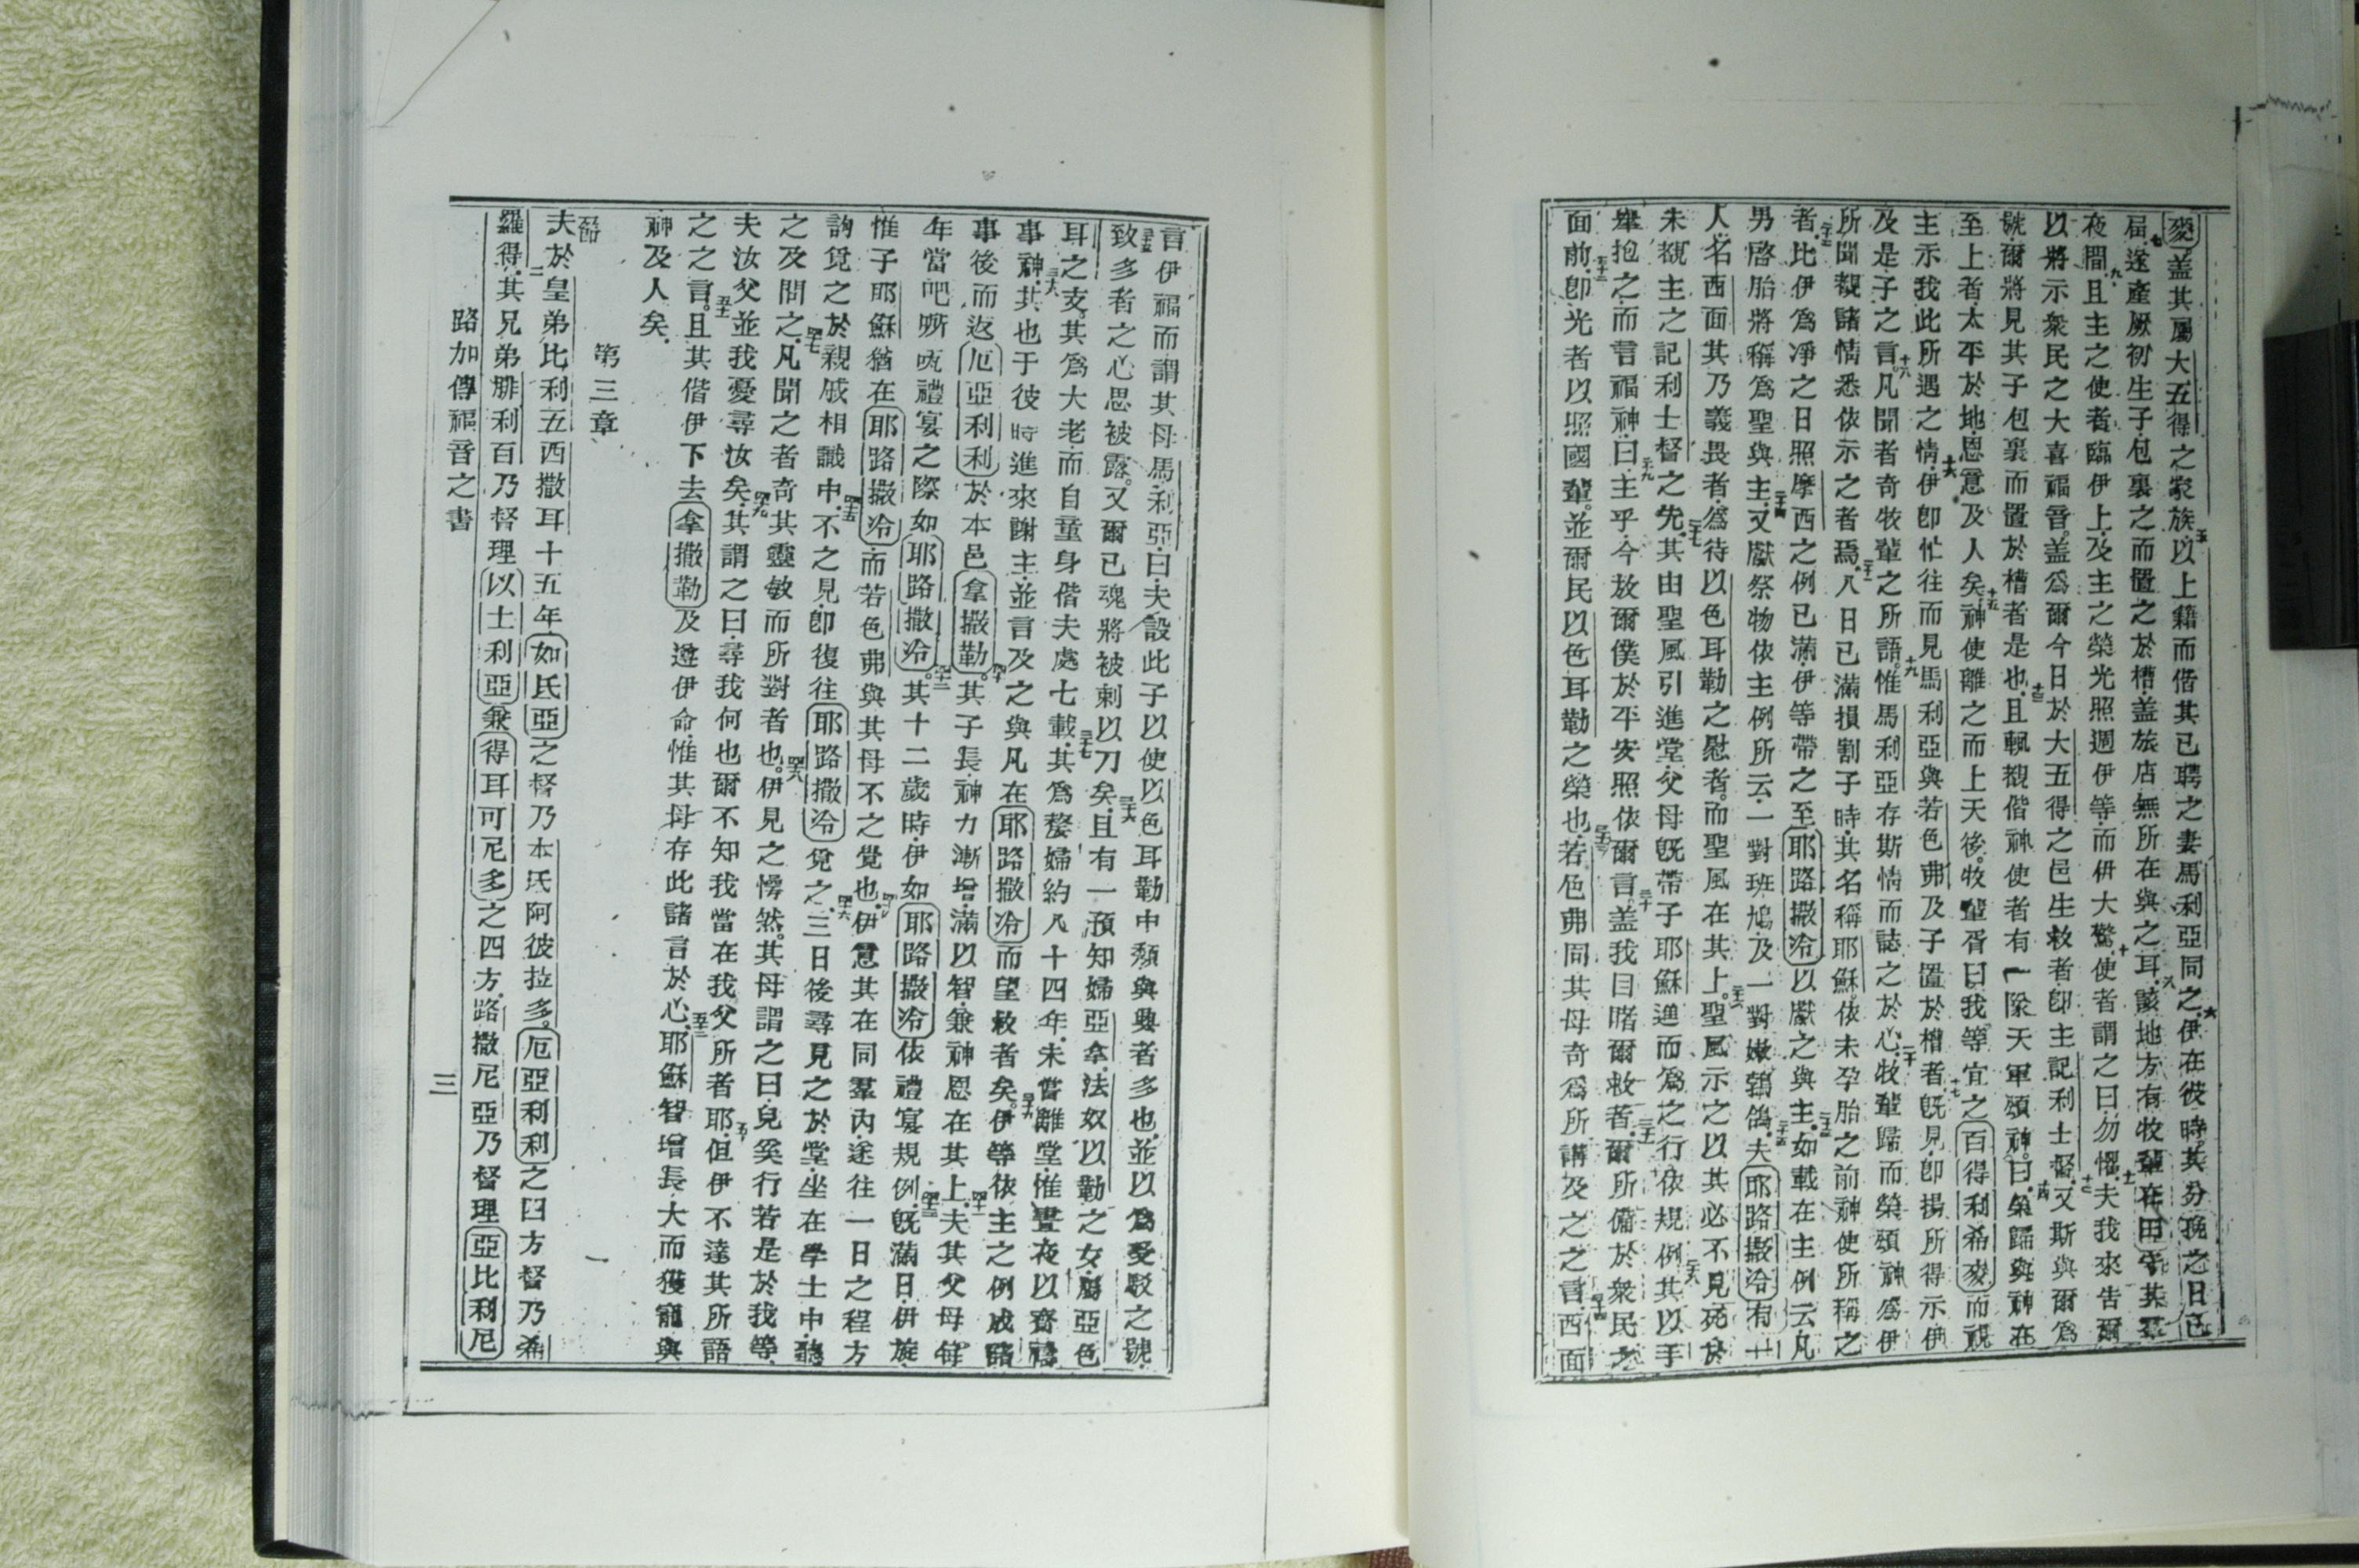 麥盖其屬大五得之家族以上籍而偕其已聘之妻馬利亞同之伊在彼時其分娩之日已
屆遂產厥初生子包裹之而置之於槽盖旅店無所在與之耳該地方有牧輩在田守其羣
夜間且主之使者臨伊上及主之榮光照週伊等而伊大驚使者謂之曰勿懼夫我來告爾
以將示衆民之大喜福音盖爲爾今日於大五得之邑生救者卽主記利士督又斯與爾爲
號爾將見其子包裹而置於槽者是也且輒覩偕神使者有一隊天軍頌神曰榮歸與神在
至上者太平於地恩意及人矣神使離之而上天後牧輩胥曰我等宜之百得利希麥而視
主示我此所遇之情伊卽忙往而見馬利亞與若色弗及子置於槽者旣見卽揚所得示伊
及是子之言凡聞者奇牧輩之所語惟馬利亞存斯情而誌之於心牧輩歸而榮頌神爲伊
所聞覩諸情悉依示之者焉八日已滿損割子時其名稱耶穌依未孕胎之前神使所稱之
者比伊爲凈之日照摩西之例已滿伊等帶之至耶路撒冷以獻之與主如載在主例云凡
男啓胎將稱爲聖與主又獻祭物依主例所云一對班鳩及一對嫩鵓鴿夫耶路撒冷有一
人名西面其乃義畏者爲待以色耳勒之慰者而聖風在其上聖風示之以其必不見死於
未覩主之記利士督之先其由聖風引進堂父母旣帶子耶穌進而爲之行依規例其以手
舉抱之而言福神曰主乎今放爾僕於平安照依爾言盖我目睹爾救者爾所備於衆民之
面前卽光者以照國輩並爾民以色耳勒之榮也若色弗同其母奇爲所講及之之言西面
言伊福而謂其母馬利亞曰夫設此子以使以色耳勒中頽與興者多也並以爲受駁之號
致多者之心思被露又爾已魂將被刺以刀矣且有一預知婦亞拿法奴以勒之女屬亞色
耳之支其爲大老而自童身偕夫處七載其爲嫠婦約八十四年未嘗離堂惟晝夜以齋禱
事神其也于彼時進來謝主並言及之與凡在耶路撒冷而望救者矣伊等依主之例成諸
事後而返厄亞利利於本邑拿撒勒其子長神力漸增滿以智兼神恩在其上夫其父母每
年當吧㗭咓禮宴之際如耶路撒冷其十二歲時伊如耶路撒冷依禮宴規例旣滿日伊旋
惟子耶穌猶在耶路撒冷而若色弗與其母不之覺也伊意其在同羣內遂往一日之程方
詢覓之於親戚相識中不之見卽復往耶路撒冷覓之三日後尋見之於堂坐在學士中聽
之及問之凡聞之者奇其靈敏而所對者也伊見之愕然其母謂之曰兒奚行若是於我等
夫汝父並我憂尋汝矣其謂之曰尋我何也爾不知我當在我父所者耶但伊不達其所語
之之言且其偕伊下去拿撒勒及遵伊命惟其母存此諸言於心耶穌智增長大而獲寵與
神及人矣
第三章
夫於皇弟比利五西撒耳十五年如氐亞之督乃本氐阿彼拉多厄亞利利之四方督乃希
羅得其兄弟腓利百乃督理以士利亞兼得耳可尼多之四方路撒尼亞乃督理亞比利尼
路加傳福音之書 三